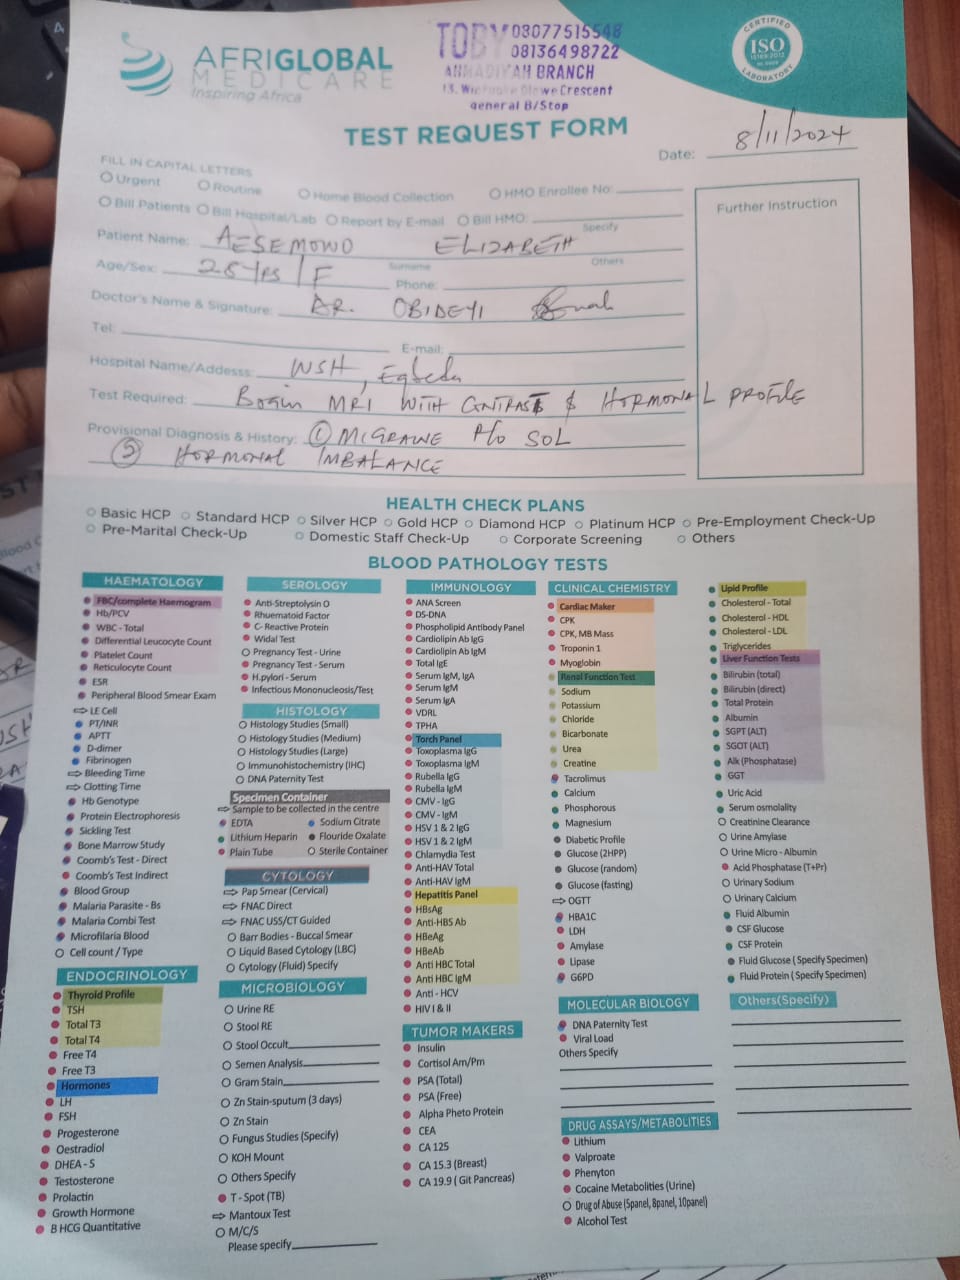 AFRIGLOBAL
MEDICARE
Inspiring Africa
TOBY 08077515548
08136498722
AHMADIYAH BRANCH
13, Crescent
general B/Stop
CERTIFIED
ISO
LABORATORY
TEST REQUEST FORM
Date: 8/11/2024
FILL IN CAPITAL LETTERS
Urgent Routine Home Blood Collection HMO Enrollee No:
Bill Patients Bill Hospital/Lab Report by E-mail Bill HMO:
Specify
Further Instruction
Patient Name: AESEMOWO ELIZABETH
Surname Others
Age/Sex: 28yrs/F Phone:
Doctor's Name & Signature: DR. OBIDEYI
Tel: E-mail:
Hospital Name/Addresss: WSH, Egbeda
Test Required: Brain MRI WITH CONTRAST & HORMONAL PROFILE
Provisional Diagnosis & History: ① MIGRAINE R/o SOL
② HORMONAL IMBALANCE
HEALTH CHECK PLANS
Basic HCP Standard HCP Silver HCP Gold HCP Diamond HCP Platinum HCP Pre-Employment Check-Up
Pre-Marital Check-Up Domestic Staff Check-Up Corporate Screening Others
BLOOD PATHOLOGY TESTS
HAEMATOLOGY
FBC/complete Haemogram
Hb/PCV
WBC - Total
Differential Leucocyte Count
Platelet Count
Reticulocyte Count
ESR
Peripheral Blood Smear Exam
LE Cell
PT/INR
APTT
D-dimer
Fibrinogen
Bleeding Time
Clotting Time
Hb Genotype
Protein Electrophoresis
Sickling Test
Bone Marrow Study
Coomb's Test - Direct
Coomb's Test Indirect
Blood Group
Malaria Parasite - Bs
Malaria Combi Test
Microfilaria Blood
Cell count / Type
ENDOCRINOLOGY
Thyroid Profile
TSH
Total T3
Total T4
Free T4
Free T3
Hormones
LH
FSH
Progesterone
Oestradiol
DHEA - S
Testosterone
Prolactin
Growth Hormone
B HCG Quantitative
SEROLOGY
Anti-Streptolysin O
Rhuematoid Factor
C- Reactive Protein
Widal Test
Pregnancy Test - Urine
Pregnancy Test - Serum
H.pylori - Serum
Infectious Mononucleosis/Test
HISTOLOGY
Histology Studies (Small)
Histology Studies (Medium)
Histology Studies (Large)
Immunohistochemistry (IHC)
DNA Paternity Test
Specimen Container
Sample to be collected in the centre
EDTA Sodium Citrate
Lithium Heparin Flouride Oxalate
Plain Tube Sterile Container
CYTOLOGY
Pap Smear (Cervical)
FNAC Direct
FNAC USS/CT Guided
Barr Bodies - Buccal Smear
Liquid Based Cytology (LBC)
Cytology (Fluid) Specify
MICROBIOLOGY
Urine RE
Stool RE
Stool Occult
Semen Analysis
Gram Stain
Zn Stain-sputum (3 days)
Zn Stain
Fungus Studies (Specify)
KOH Mount
Others Specify
T - Spot (TB)
Mantoux Test
M/C/S
Please specify
IMMUNOLOGY
ANA Screen
DS-DNA
Phospholipid Antibody Panel
Cardiolipin Ab IgG
Cardiolipin Ab IgM
Total IgE
Serum IgM, IgA
Serum IgM
Serum IgA
VDRL
TPHA
Torch Panel
Toxoplasma IgG
Toxoplasma IgM
Rubella IgG
Rubella IgM
CMV - IgG
CMV - IgM
HSV 1 & 2 IgG
HSV 1 & 2 IgM
Chlamydia Test
Anti-HAV Total
Anti-HAV IgM
Hepatitis Panel
HBsAg
Anti-HBS Ab
HBeAg
HBeAb
Anti HBC Total
Anti HBC IgM
Anti - HCV
HIV I & II
TUMOR MAKERS
Insulin
Cortisol Am/Pm
PSA (Total)
PSA (Free)
Alpha Pheto Protein
CEA
CA 125
CA 15.3 (Breast)
CA 19.9 ( Git Pancreas)
CLINICAL CHEMISTRY
Cardiac Maker
CPK
CPK, MB Mass
Troponin 1
Myoglobin
Renal Function Test
Sodium
Potassium
Chloride
Bicarbonate
Urea
Creatine
Tacrolimus
Calcium
Phosphorous
Magnesium
Diabetic Profile
Glucose (2HPP)
Glucose (random)
Glucose (fasting)
OGTT
HBA1C
LDH
Amylase
Lipase
G6PD
MOLECULAR BIOLOGY
DNA Paternity Test
Viral Load
Others Specify
DRUG ASSAYS/METABOLITIES
Lithium
Valproate
Phenyton
Cocaine Metabolities (Urine)
Drug of Abuse (5panel, 8panel, 10panel)
Alcohol Test
Lipid Profile
Cholesterol - Total
Cholesterol - HDL
Cholesterol - LDL
Triglycerides
Liver Function Tests
Bilirubin (total)
Bilirubin (direct)
Total Protein
Albumin
SGPT (ALT)
SGOT (ALT)
Alk (Phosphatase)
GGT
Uric Acid
Serum osmolality
Creatinine Clearance
Urine Amylase
Urine Micro - Albumin
Acid Phosphatase (T+Pr)
Urinary Sodium
Urinary Calcium
Fluid Albumin
CSF Glucose
CSF Protein
Fluid Glucose ( Specify Specimen)
Fluid Protein ( Specify Specimen)
Others(Specify)